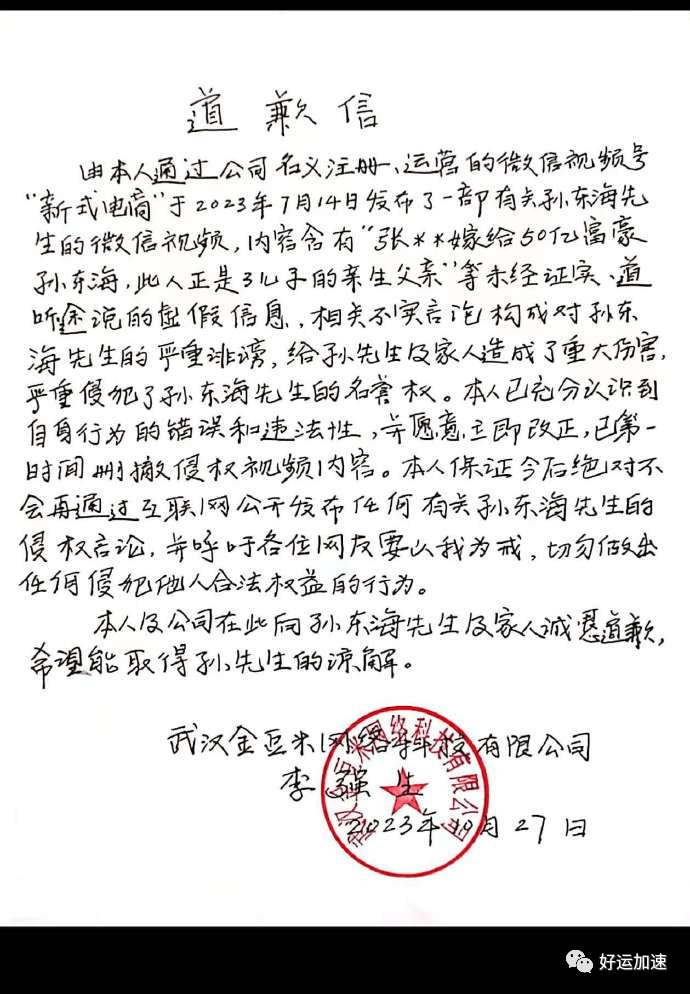 道歉信
由本人通过公司名义注册、运营的微信视频号
"新式电商"于2023年7月14日发布了一部有关孙东海先
生的微信视频,内容含有"张**嫁给50亿富豪
孙东海,此人正是3儿子的亲生父亲"等未经证实、道
听途说的虚假信息,相关不实言论构成对孙东
海先生的严重诽谤,给孙先生及家人造成了重大伤害,
严重侵犯了孙东海先生的名誉权。本人已充分认识到
自身行为的错误和违法性,并愿意立即改正,已第一
时间删撤侵权视频内容。本人保证今后绝对不
会再通过互联网公开发布任何有关孙东海先生的
侵权言论,并呼吁各位网友要以我为戒,切勿做出
任何侵犯他人合法权益的行为。
本人及公司在此向孙东海先生及家人诚恳道歉,
希望能取得孙先生的谅解。
武汉金亚米网络科技有限公司
李强生
2023年10月27日
武汉金亚米网络科技有限公司
好运加速